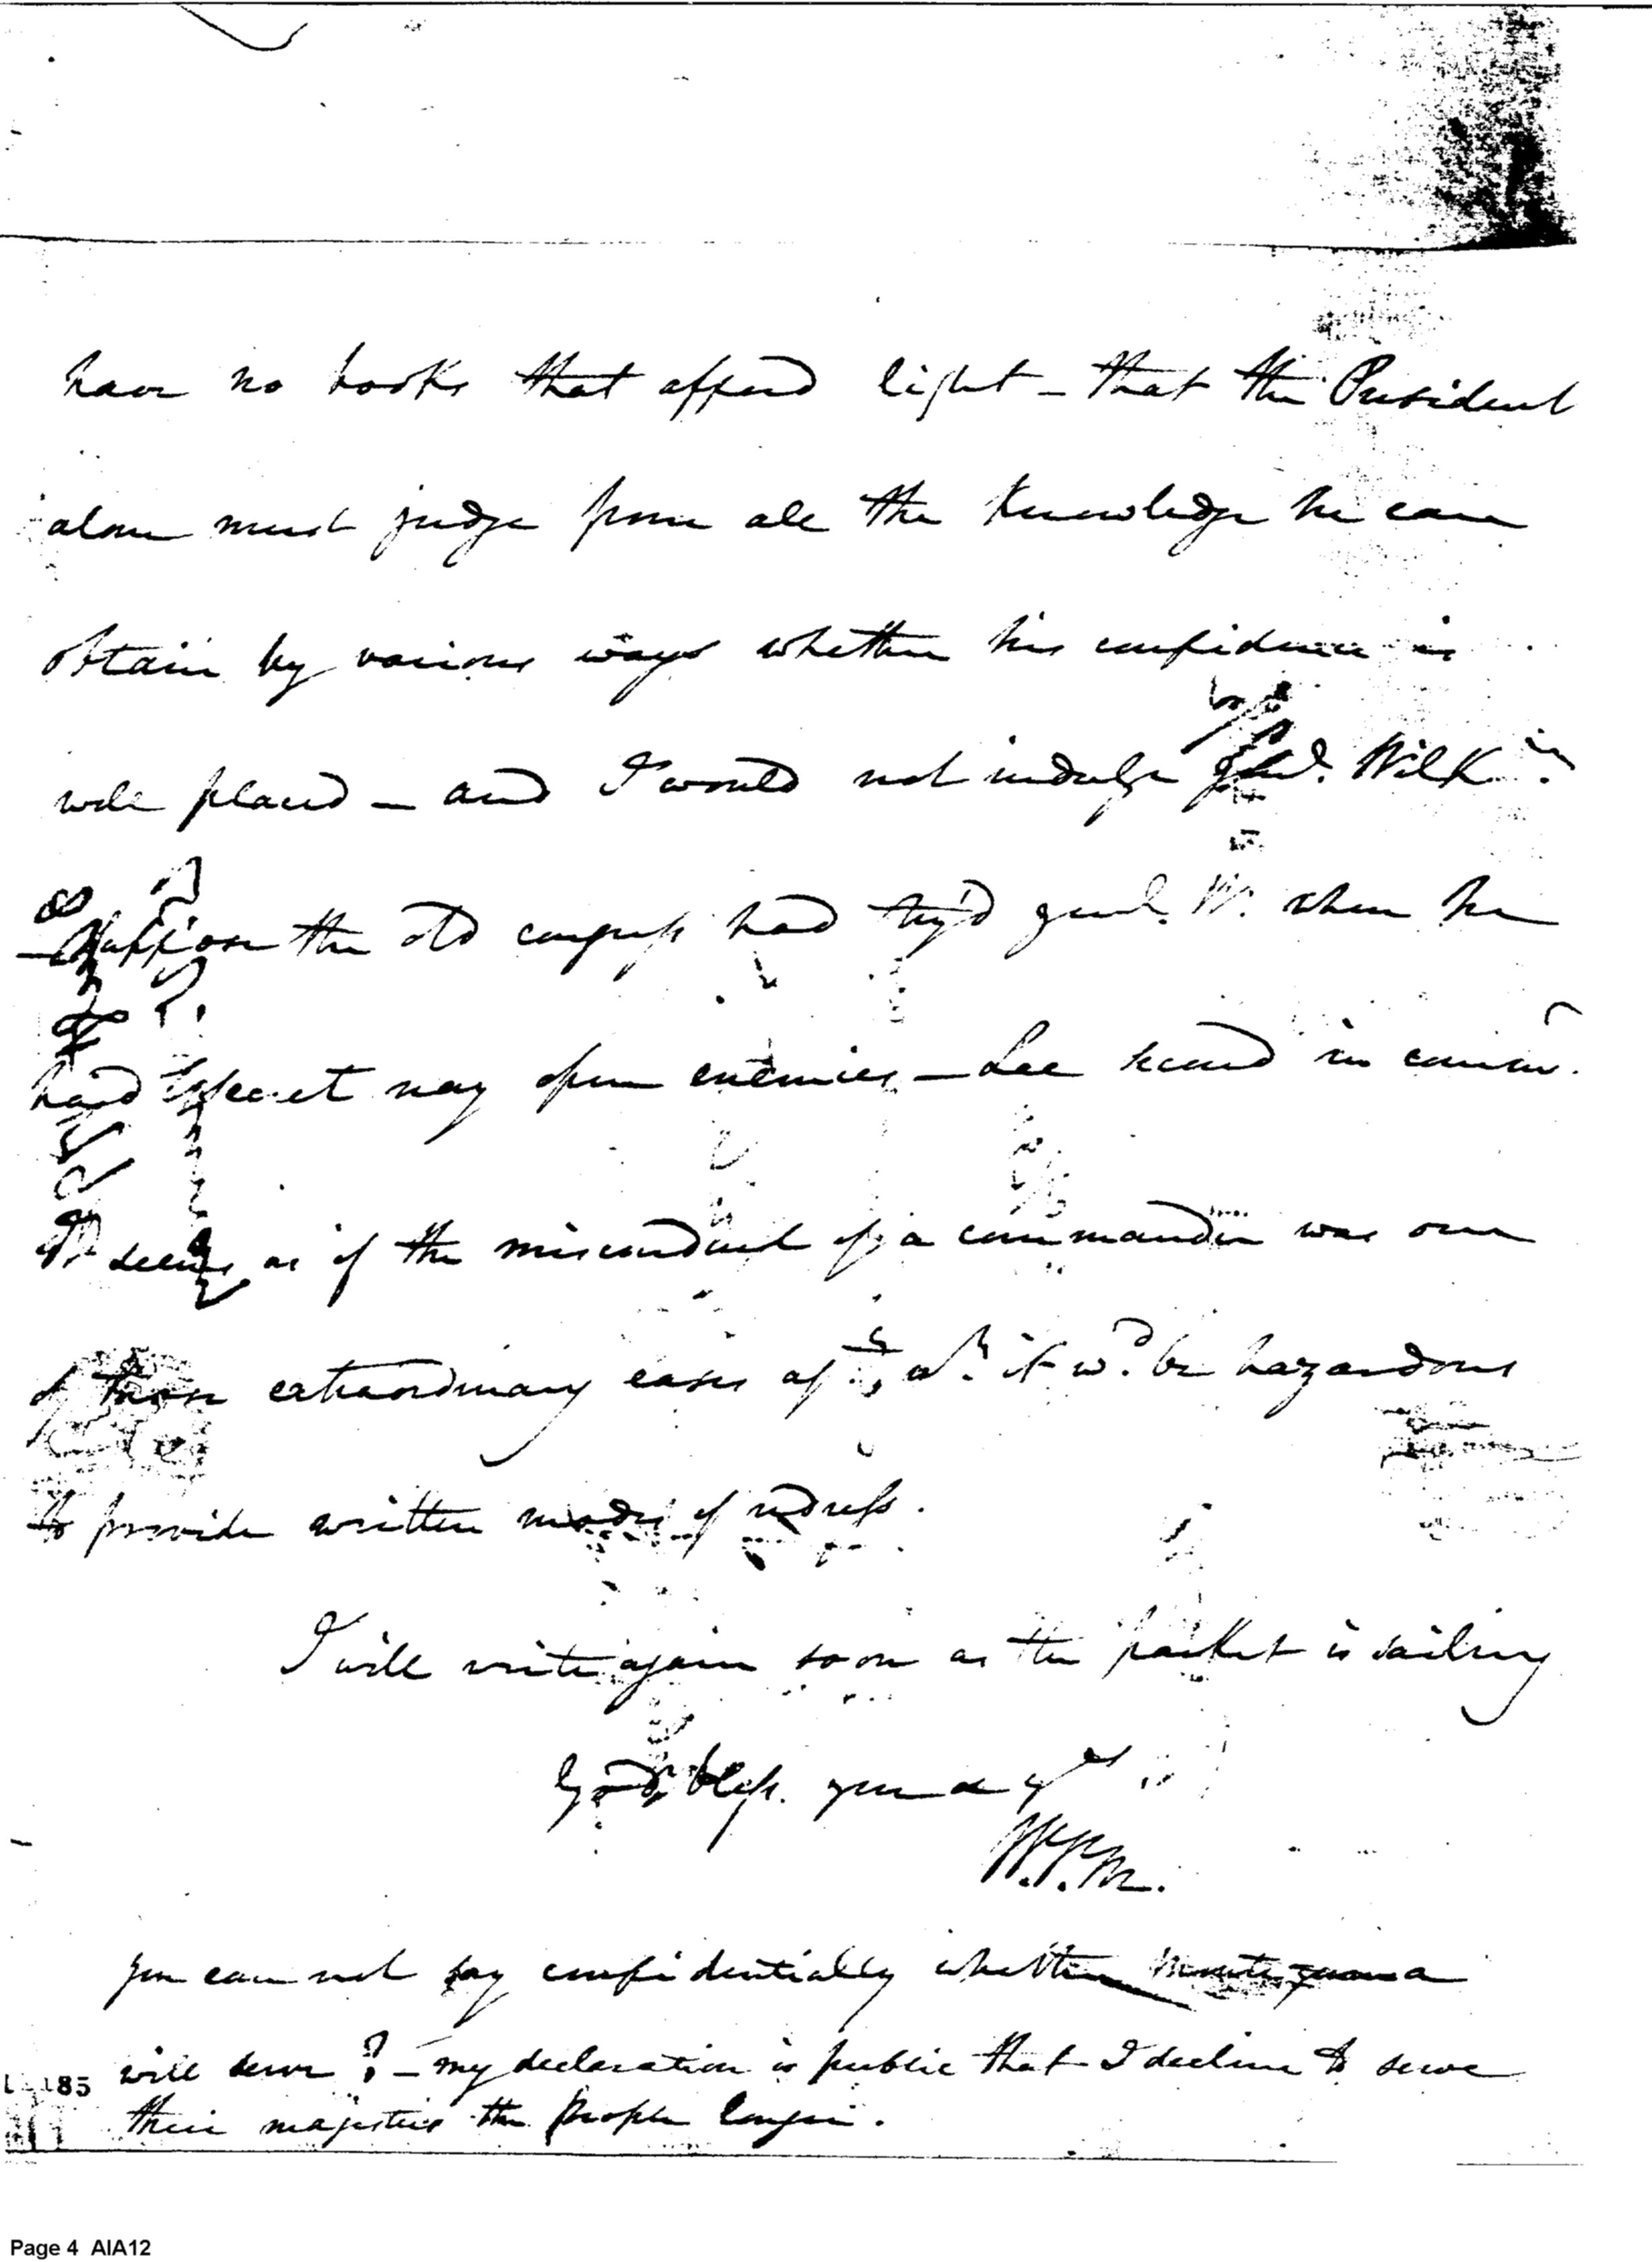 have no books that afford light – that the President
alone must judge from all the Knowledge he can
obtain by various ways whether his confidence is
well placed – and I would not indulge Genl. Wilkin
– Suppose the old congress had try'd genl. W. when he
had secret nay open enemies – Lee second in comm.
It seems as if the misconduct of a commander was one
of those extraordinary cases agt. wh. it wd. be hazardous
to provide written modes of redress.
I will write again soon as the packet is sailing
God bless you & yrs
W.V.M.
you can not say confidentially whether Montezuma
will serve? – my declaration is public that I decline to serve
their majesties the People longer.
185
Page 4 AIA12